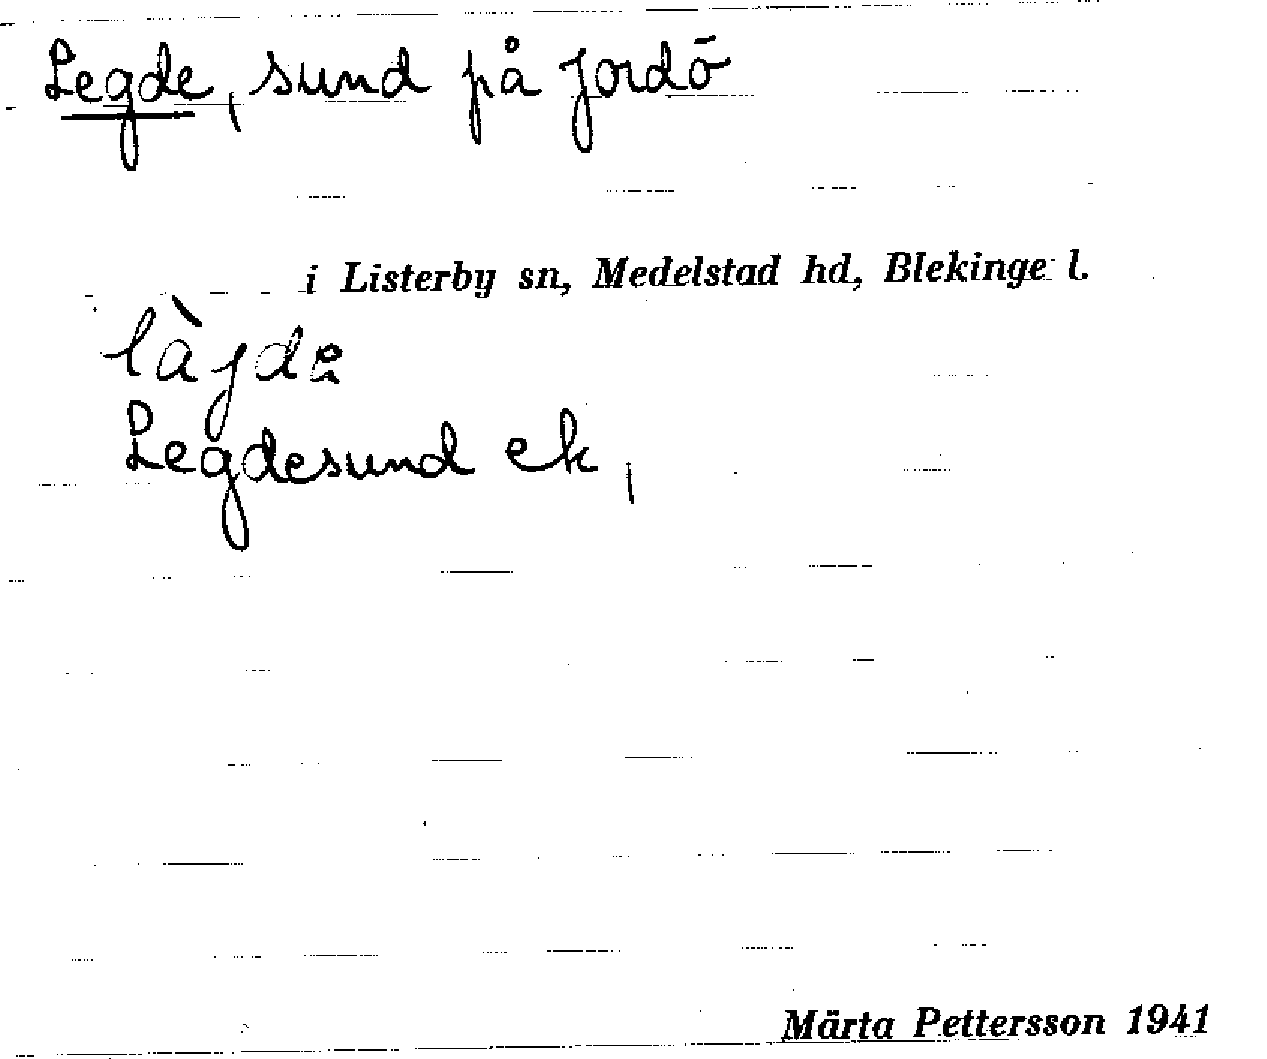 Legde, sund på Jordö
i Listerby sn, Medelstad hd, Blekinge l.
làjdə
Legdesund ek,
Märta Pettersson 1941